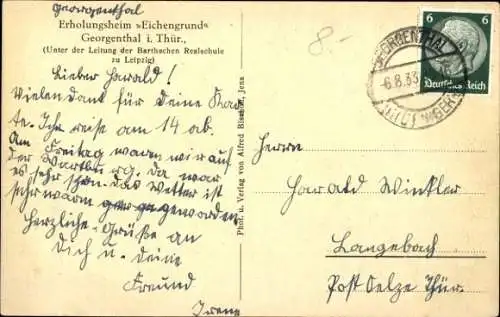 Georgenthal
Erholungsheim »Eichengrund«
Georgenthal i. Thür.,
(Unter der Leitung der Barthschen Realschule
zu Leipzig)
Lieber Harald!
Vielen Dank für Deine Kar
te. Ich reise am 14 ab.
Am Freitag waren wir auf
der Wartburg. Da war
es sehr schön. Das Wetter ist
sehr warm geworden
Herzliche Grüße an
Dich u. Deine
Freund
Phot. u. Verlag von Alfred Bischof, Jena
8.-
GEORGENTHAL
-6.8.33
6 6
Deutsches Reich
Herrn
Harald Winkler
Langebach
Post Oelze Thür.